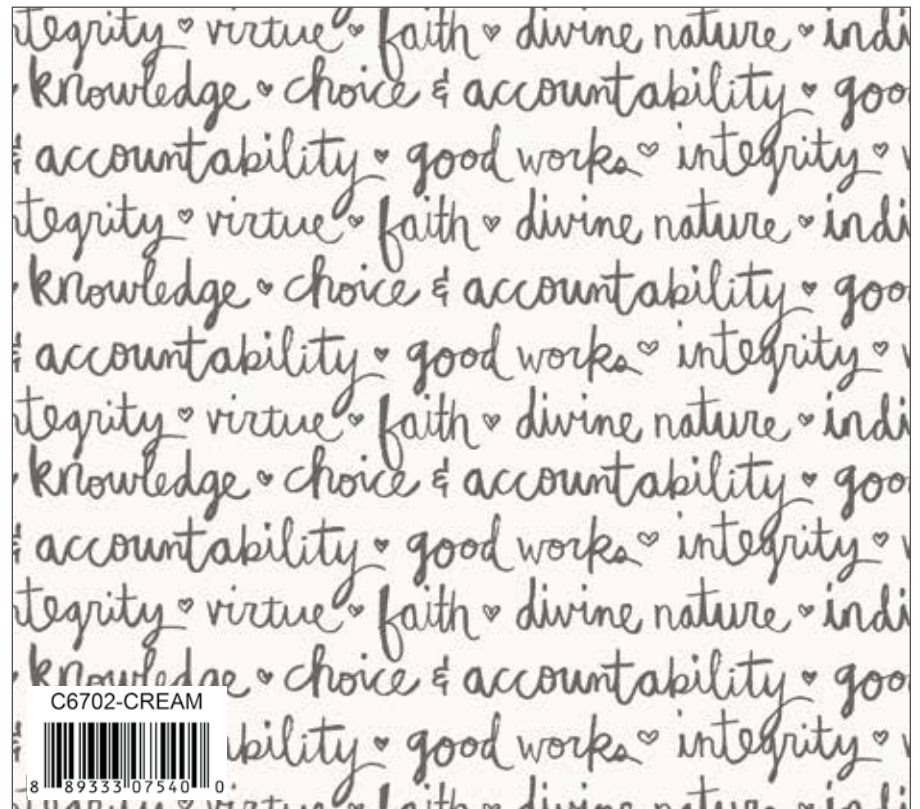 ntegrity virtue faith divine nature indi
knowledge choice & accountability goo
& accountability good works integrity
ntegrity virtue faith divine nature indi
knowledge choice & accountability goo
& accountability good works integrity
ntegrity virtue faith divine nature indi
knowledge choice & accountability goo
& accountability good works integrity
ntegrity virtue faith divine nature indi
knowledge choice & accountability goo
C6702-CREAM
bility good works integrity
8 89333 07540 0
virtue faith divine nature indi